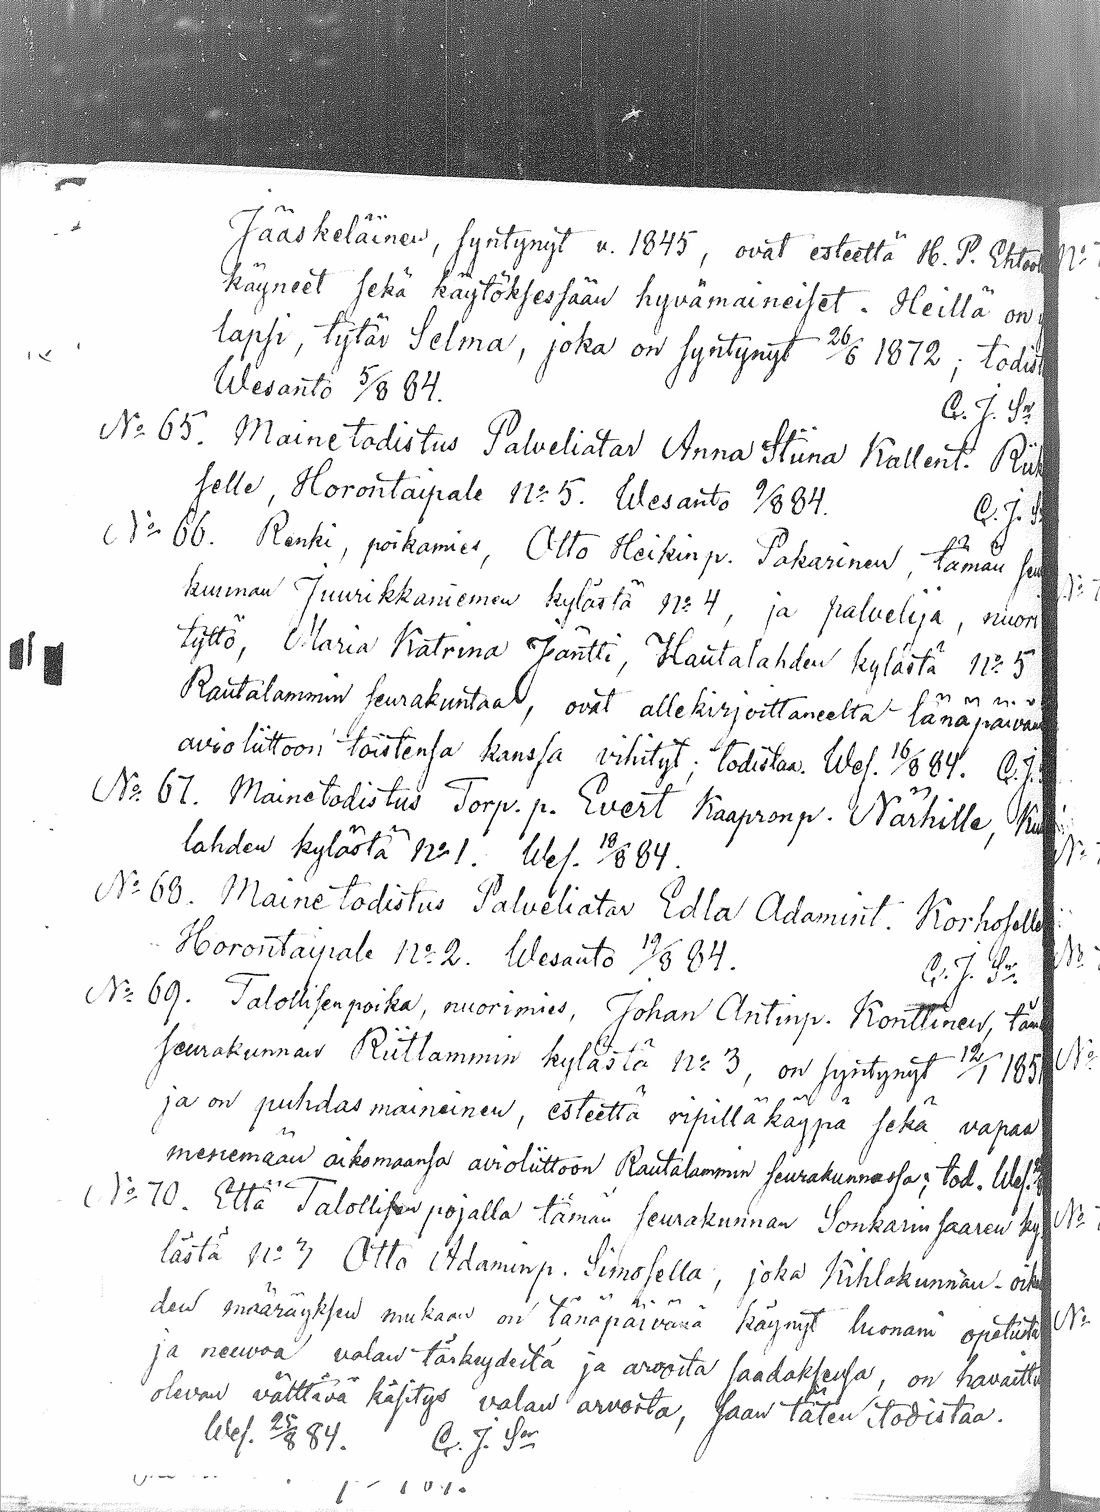 Jääskeläinen, syntynyt v. 1845, ovat esteettä H. P. Ehtool
käyneet sekä käytöksessään hyvämaineiset. Heillä on
lapsi, tytär Selma, joka on syntynyt 26/6 1872; todist
Wesanto 5/8 84.
C. J. Sn
No 65. Mainetodistus Palveliatar Anna Stiina Kallent. Riik
selle, Horontaipale No 5. Wesanto 9/8 84.
C. J. S
No 66. Renki, poikamies, Otto Heikinp. Pakarinen, tämän seu
kunnan Juurikkaniemen kylästä No 4, ja palvelija, nuori
tyttö, Maria Katrina Jäntti, Hautalahden kylästä No 5
Rautalammin seurakuntaa, ovat allekirjoittaneelta tänäpäivän
avioliittoon toistensa kanssa vihityt; todistaa. Wes. 16/8 84. C. J.
No 67. Mainetodistus Torp. p. Evert Kaapronp. Närhille, Ku
lahden kylästä No 1. Wes. 18/8 84.
No 68. Mainetodistus Palveliatar Edla Adamint. Korhoselle
Horontaipale No 2. Wesanto 19/8 84.
C. J. Sn.
No 69. Talollisenpoika, nuorimies, Johan Antinp. Konttinen, täm
seurakunnan Riitlammin kylästä No 3, on syntynyt 12/1 185
ja on puhdasmaineinen, esteettä ripilläkäypä sekä vapaa
menemään aikomaansa avioliittoon Rautalammin seurakunnassa; tod. Wes.
No 70. Että Talollisen pojalla tämän seurakunnan Sonkarinsaaren ky
lästä No 7 Otto Adaminp. Simosella, joka Kihlakunnan-oike
den määräyksen mukaan on tänäpäivänä käynyt luonani opetusta
ja neuvoa valan tärkeydestä ja arvosta saadaksensa, on havaittu
olevan välttävä käsitys valan arvosta, saan täten todistaa.
Wes. 25/8 84. C. J. Sn